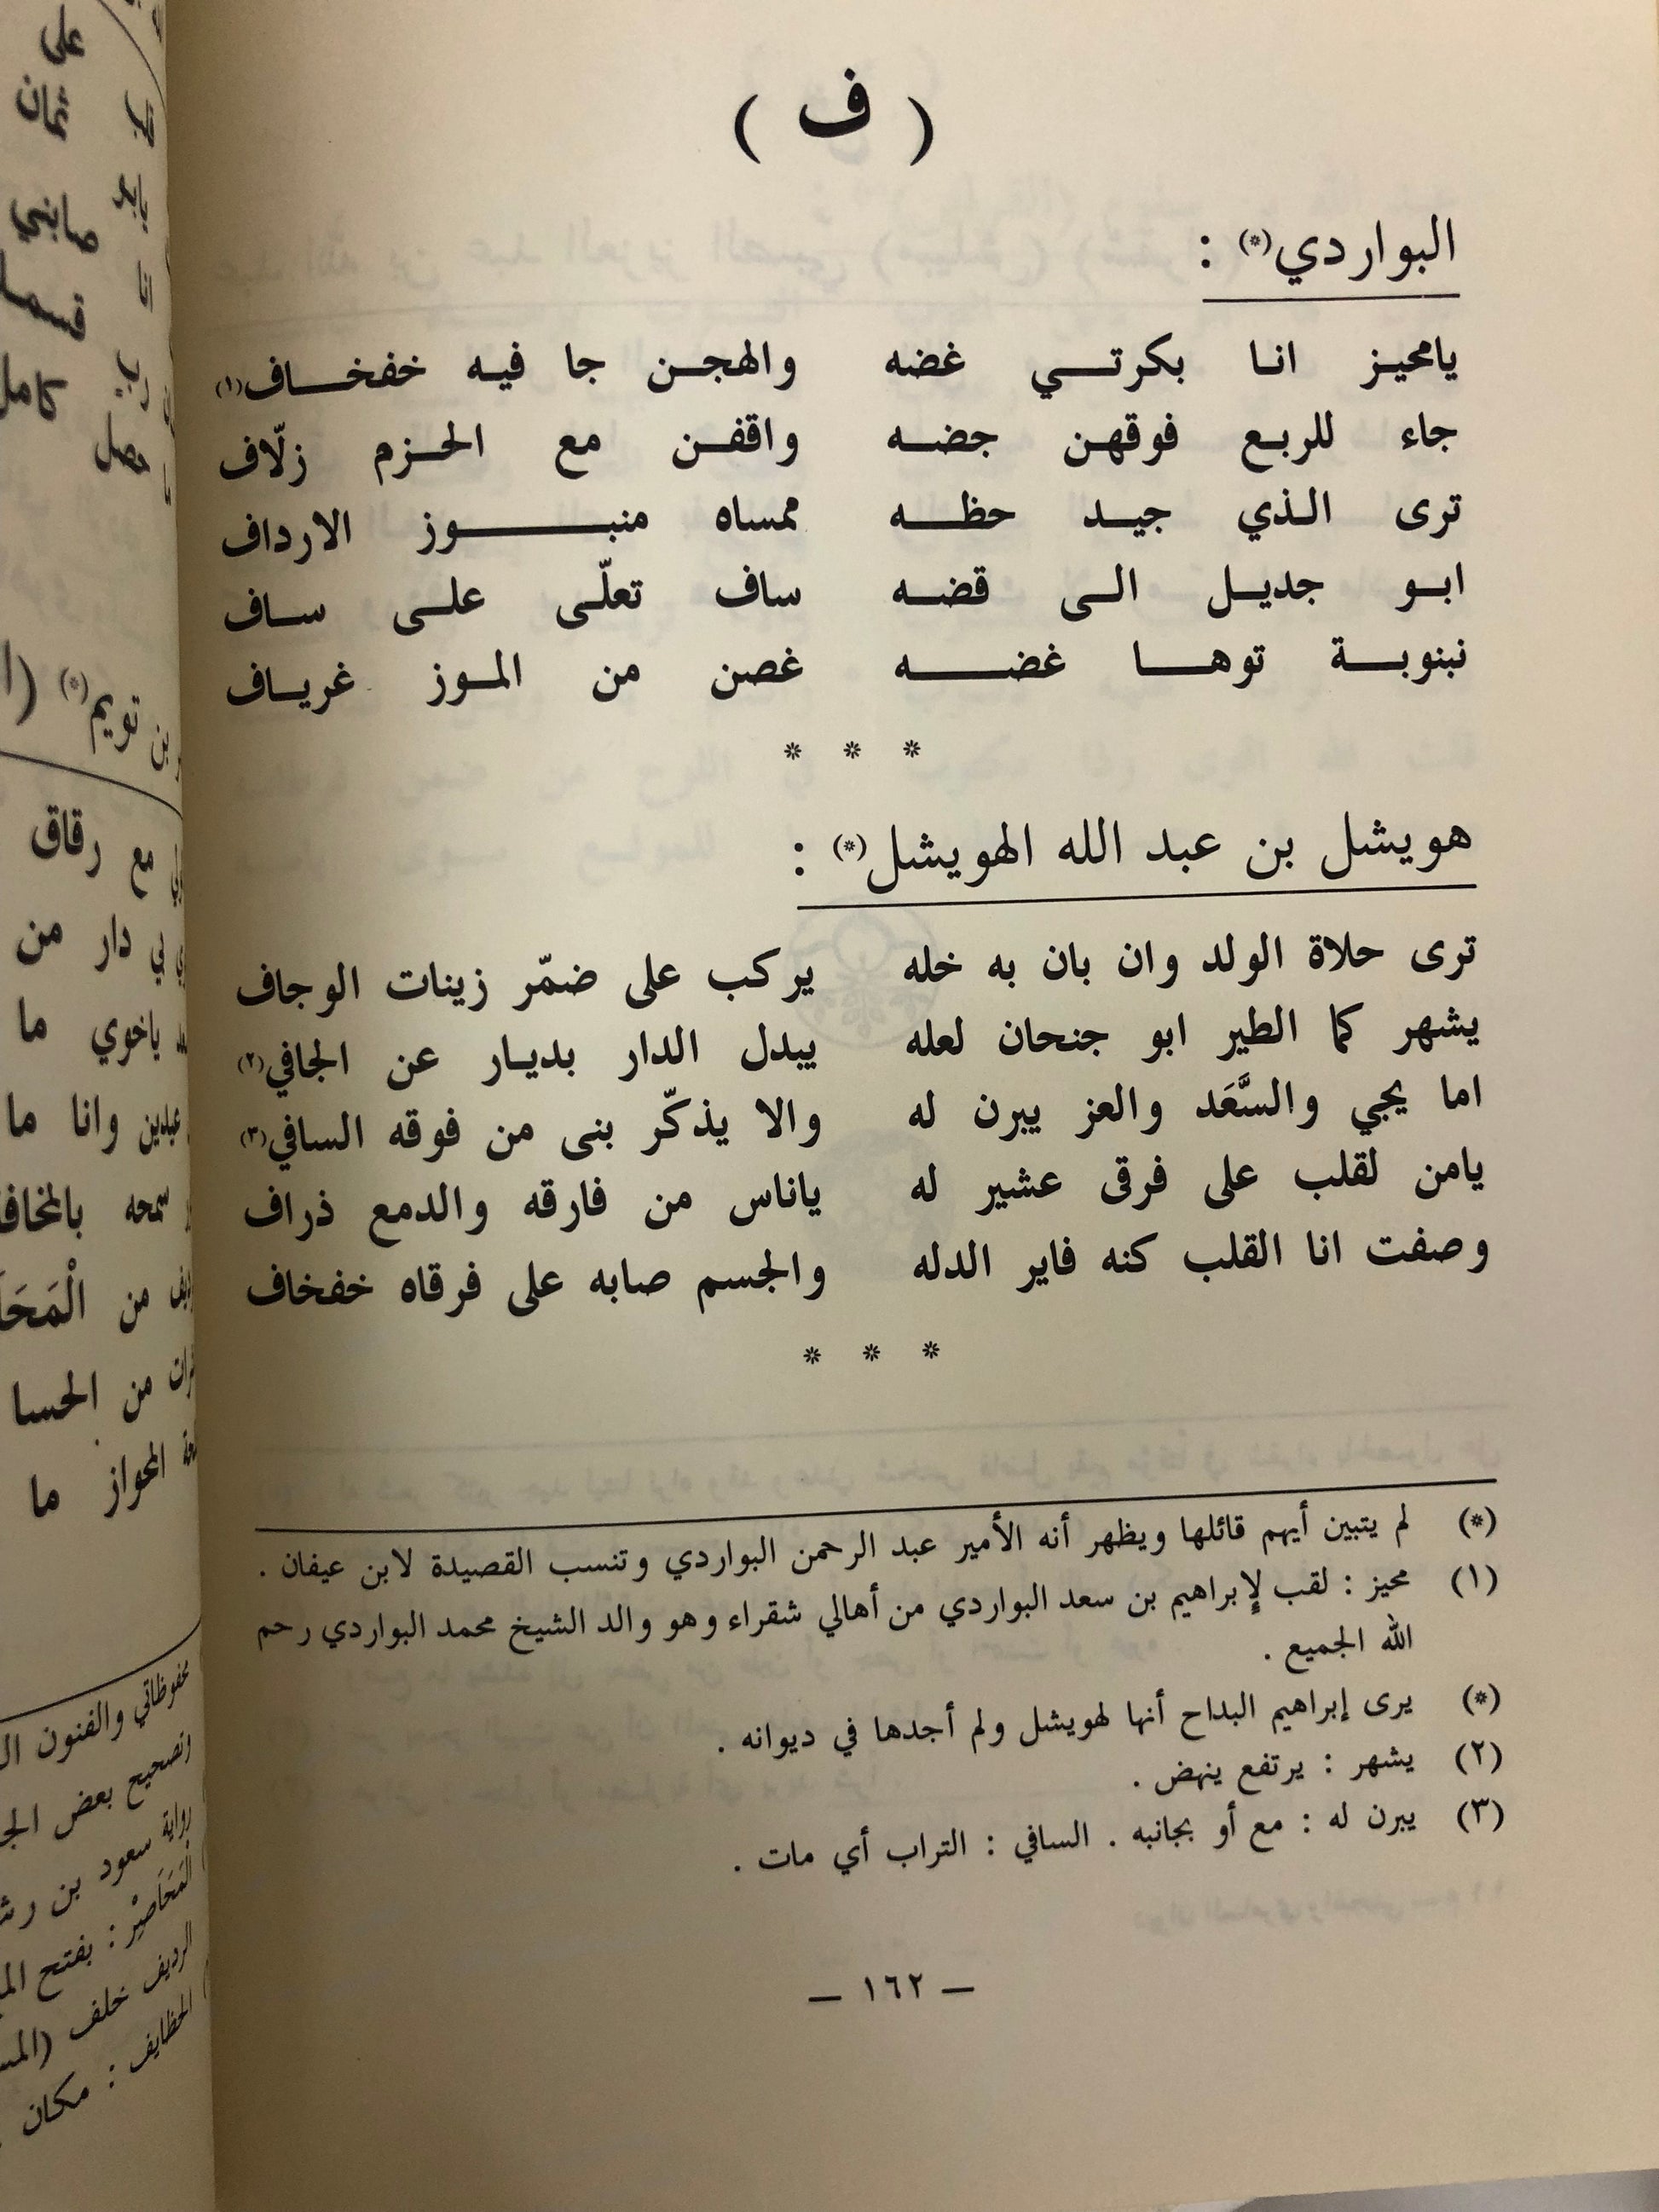 ( ف )
البواردي(*) :
يامحيز انا بكرتي غضه والهجن جا فيه خفخاف(١)
جاء للربع فوقهن جضه واقفن مع الحزم زلّاف
ترى الذي جيد حظه ممساه منبوز الارداف
ابو جديل الى قضه ساف تعلّى على ساف
نبنوبة توها غضه غصن من الموز غرياف
* * *
هويشل بن عبد الله الهويشل(*) :
ترى حلاة الولد وان بان به خله يركب على ضمّر زينات الوجاف
يشهر كما الطير ابو جنحان لعله يبدل الدار بديار عن الجافي(٢)
اما يجي والسَّعَد والعز يبرن له والا يذكّر بنى من فوقه السافي(٣)
يامن لقلب على فرقى عشير له ياناس من فارقه والدمع ذراف
وصفت انا القلب كنه فاير الدله والجسم صابه على فرقاه خفخاف
* * *
(*) لم يتبين أيهم قائلها ويظهر أنه الأمير عبد الرحمن البواردي وتنسب القصيدة لابن عيفان .
(١) محيز : لقب لإبراهيم بن سعد البواردي من أهالي شقراء وهو والد الشيخ محمد البواردي رحم
الله الجميع .
(*) يرى إبراهيم البداح أنها لهويشل ولم أجدها في ديوانه .
(٢) يشهر : يرتفع ينهض .
(٣) يبرن له : مع أو بجانبه . السافي : التراب أي مات .
— ١٦٢ —
بن تويم(*)
مع رقاق
بي دار من
ياخوي ما
عيدين وانا ما
سمحه
من
من الحسا
المحواز ما
محفوظاتي والفنون
وتصحيح بعض
رواية سعود بن
بفتح
الرديف خلف
الحظايف : مكان